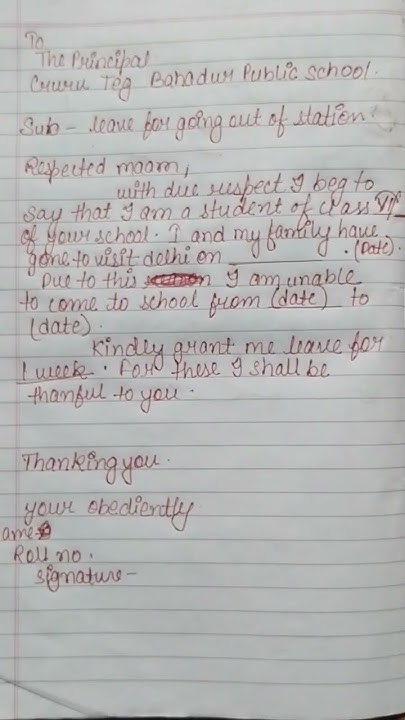 To
The Principal
Guru Teg Bahadur Public school.
Sub - leave for going out of station.
Respected maam,
with due respect I beg to
say that I am a student of class VIth
of your school. I and my family have
gone to visit delhi on ________ . (Date).
Due to this I am unable
to come to school from (date) to
(date).
Kindly grant me leave for
1 week. For these I shall be
thanful to you.
Thanking you.
your obediently
ame-
Roll no.
Signature-